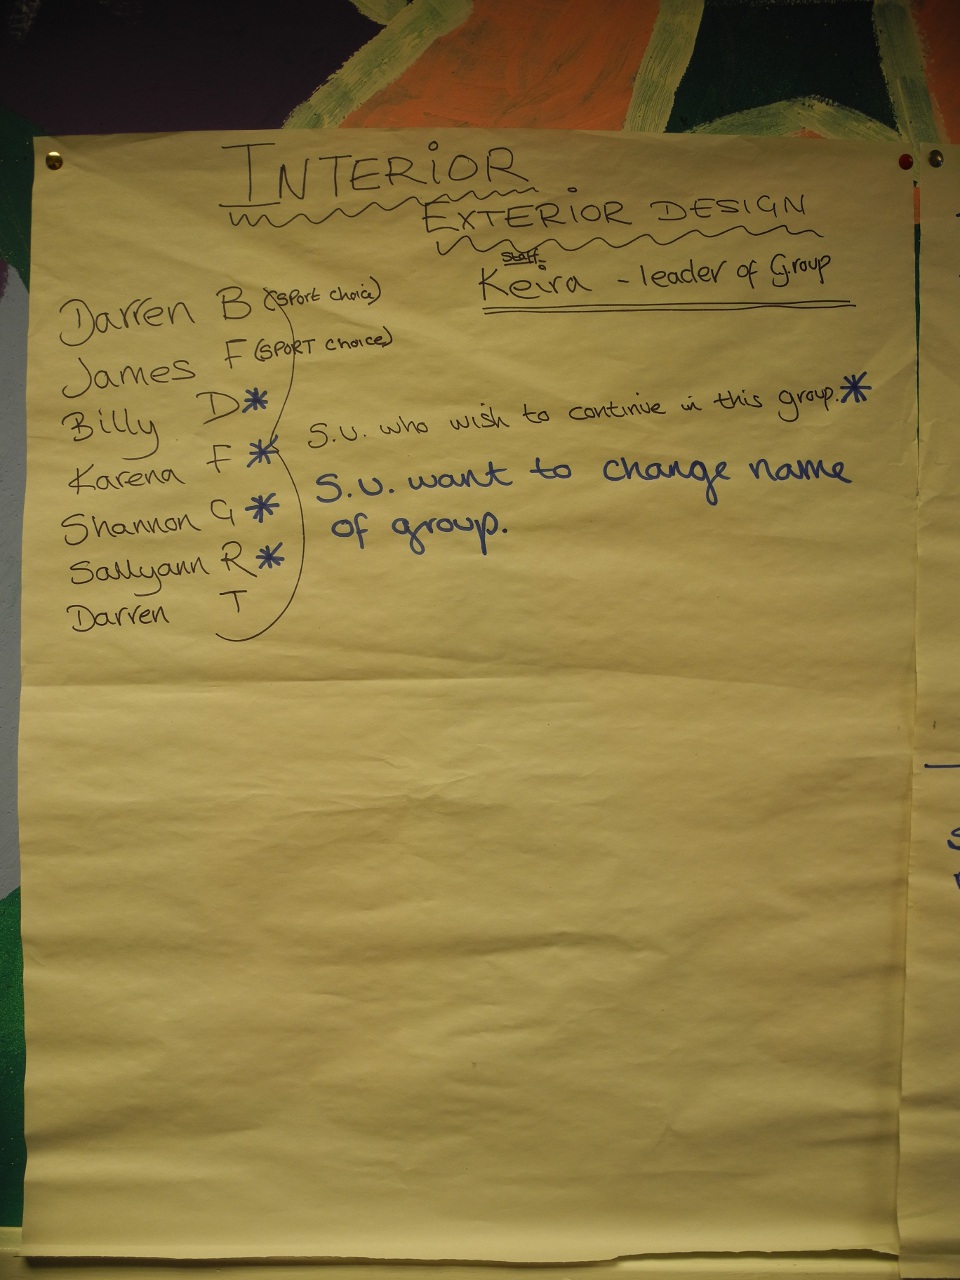 INTERIOR
EXTERIOR DESIGN
Staff
Keira - leader of Group
Darren B (SPort choice)
James F (SPORT choice)
Billy D*
Karena F *
Shannon G *
Sallyann R *
Darren T
S.U. who wish to continue in this group.*
S.U. want to change name
of group.